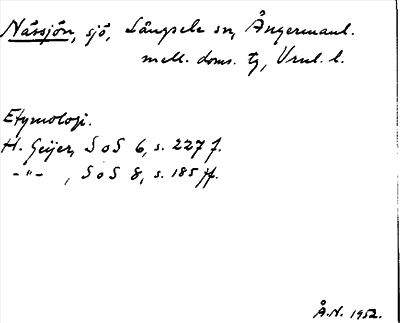 Nässjön, sjö, Långsele sn, Ångermanl.
mell. doms. tg, Vrnl. l.
Etymologi.
H. Geijer, SoS 6, s. 227 f.
-"- , SoS 8, s. 185 ff.
Å.N. 1952.